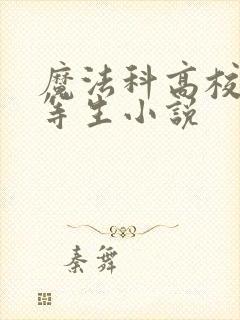 魔法科高校
等生小說
秦舞